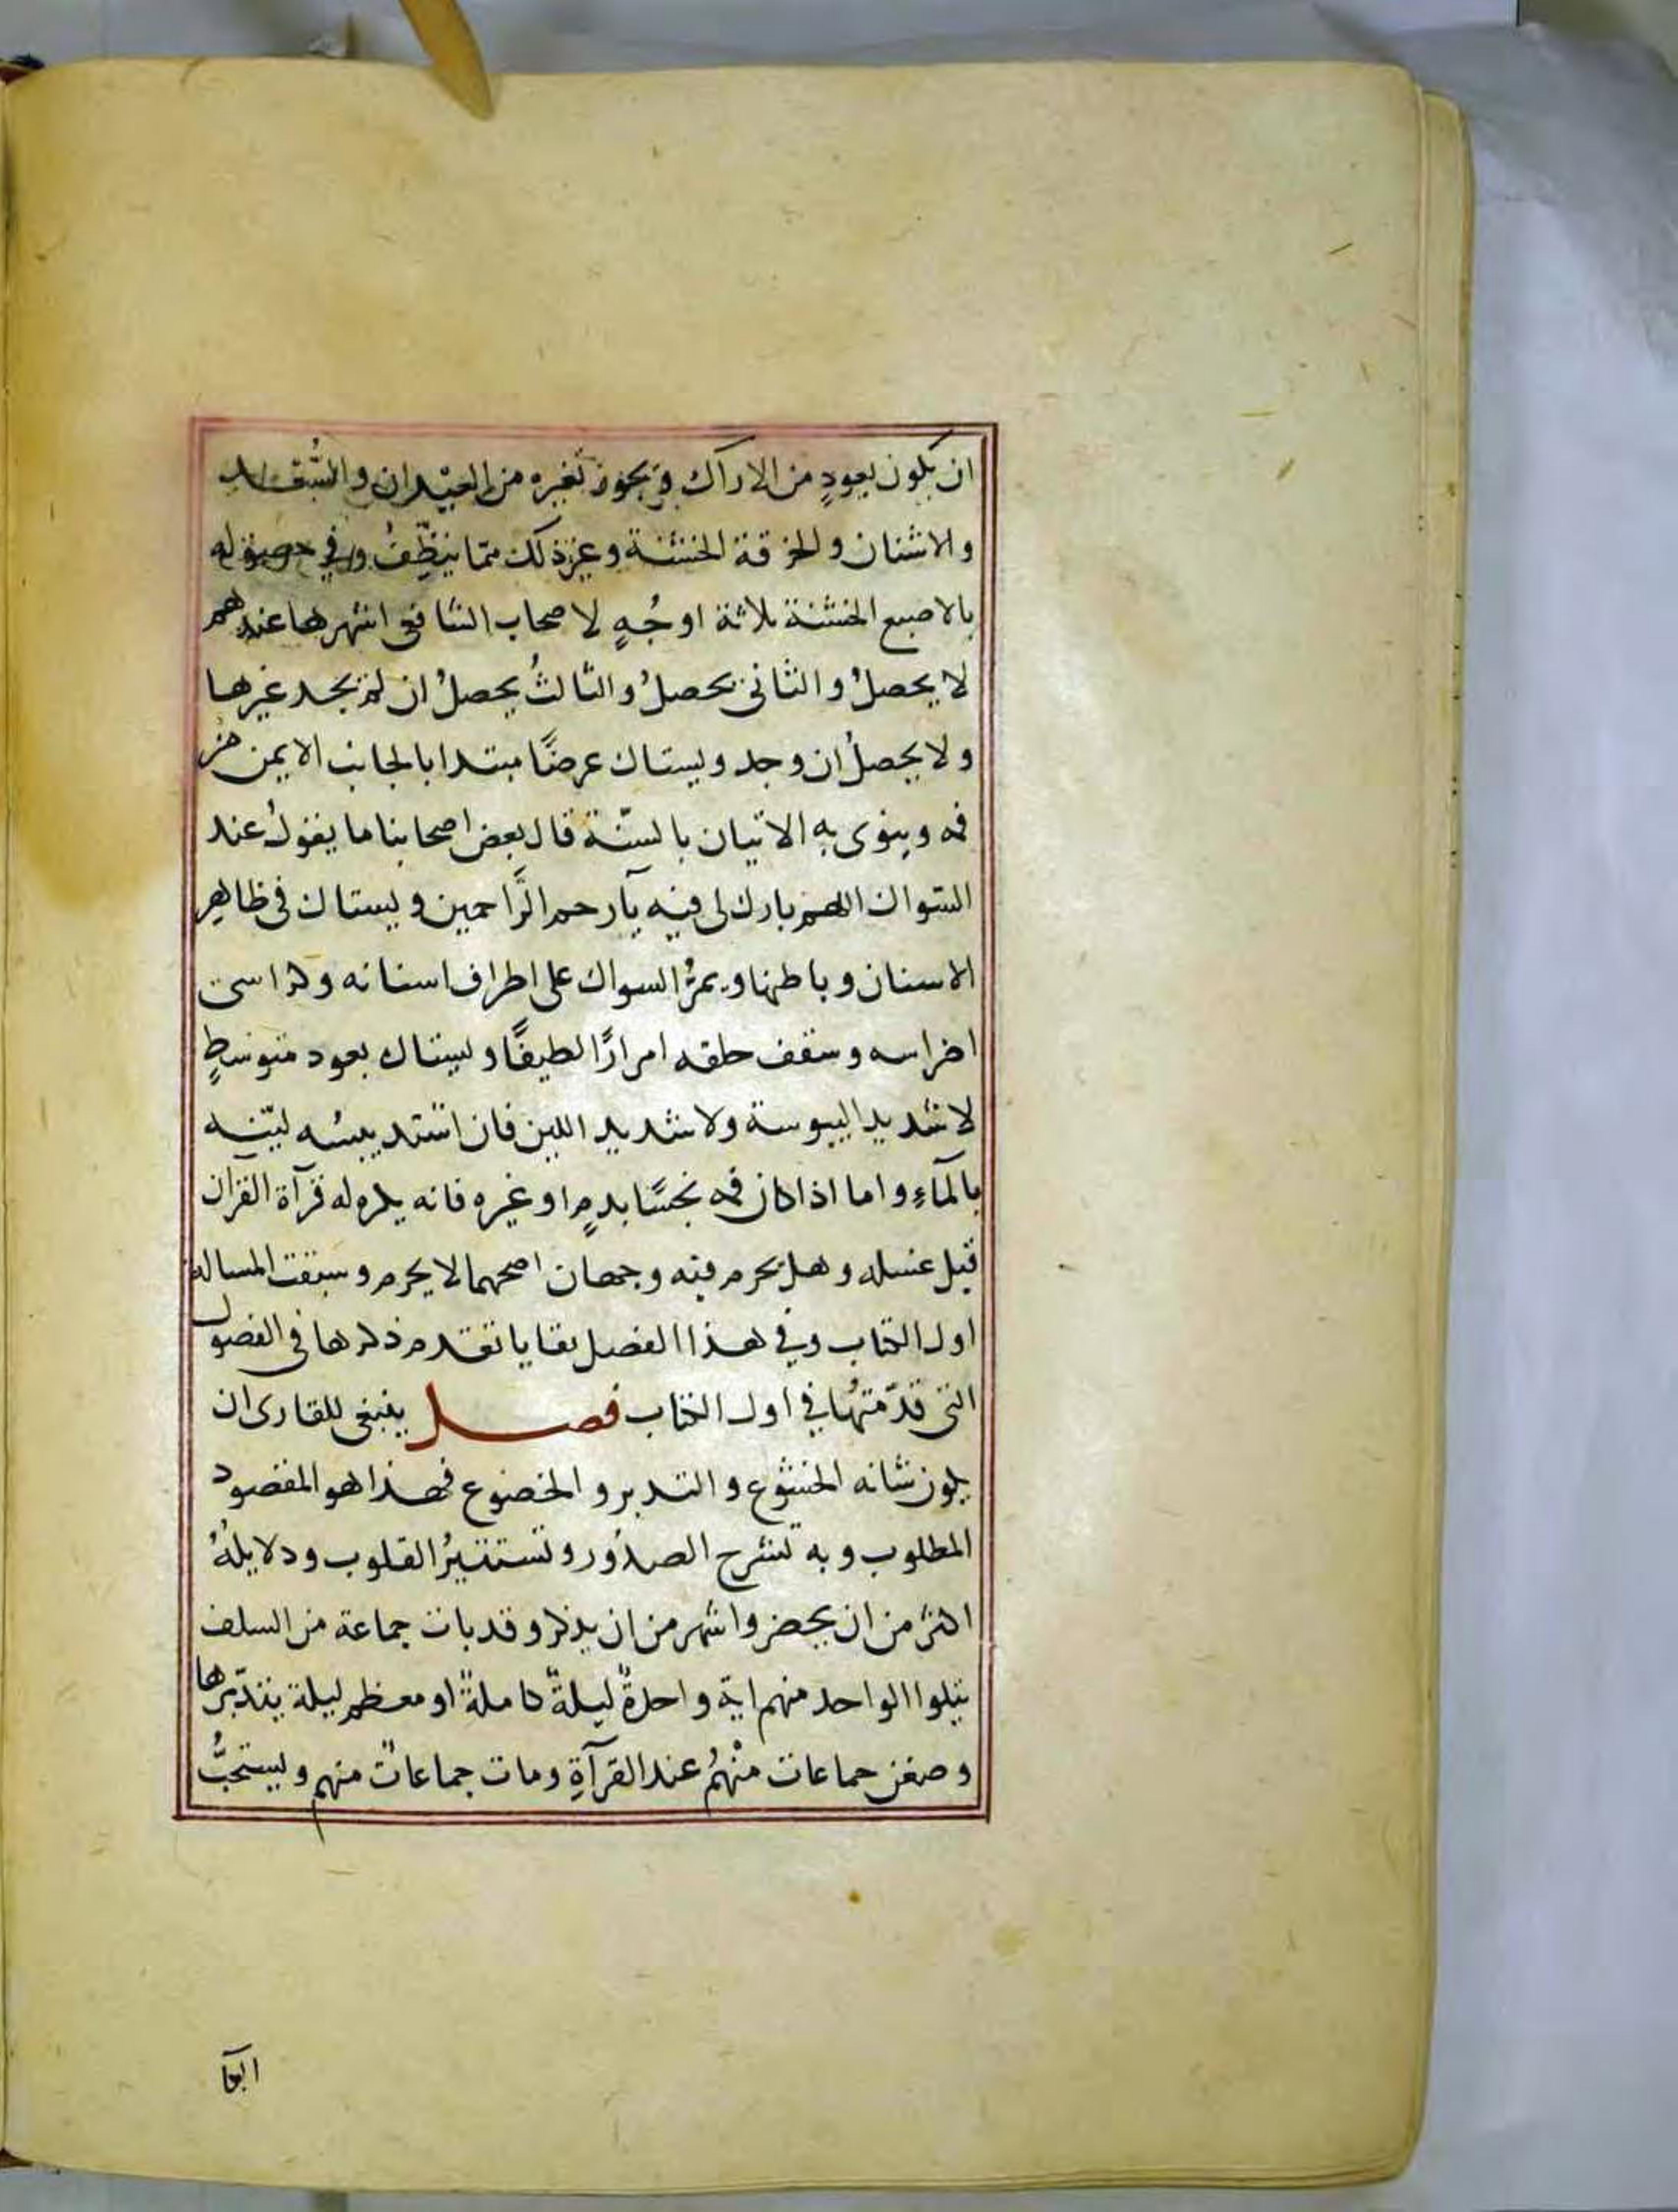 ان يكون بعودٍ من الاراك ويجوز بغيره من العيدان والسُّعد
والاشنان والخرقة الخشنة وغير ذلك ممّا ينظّفُ وفي حصوله
بالاصبع الخشنة ثلاثة اوجُهٍ لاصحاب الشافعى اشهرها عندهم
لا يحصلُ والثانى يحصلُ والثالثُ يحصلُ ان لم يجد غيرها
ولا يحصلُ ان وجد ويستاك عرضًا مبتدا بالجانب الايمن من
فمه وينوى به الاتيان بالسنّة قال بعض اصحابنا ما يقولُ عند
السّواك اللهم بارك لى فيه يآرحم الرَّاحمين ويستاك فى ظاهرِ
الاسنان وباطنها ويمرُّ السواك على اطراف اسنانه وكراسى
اضراسه وسقف حلقه امرارًا لطيفًا ويستاك بعود متوسطٍ
لا شديد اليبوسة ولا شديد اللين فان اشتد يبسُه ليّنه
بالمآءِ واما اذا كان فمه نجسًا بدمٍ او غيره فانه يكره له قرآة القران
قبل غسله وهل يحرم فيه وجهان اصحهما لا يحرم وسبقت المساله
اول الكتاب وفي هذا الفصل بقايا تقدم ذكرها فى الفصول
التى قدّمتُها في اول الكتاب فصل ينبغى للقارى ان
يكون شانه الخشوع والتدبر والخضوع فهذا هو المقصود
المطلوب وبه تنشرح الصدُور وتستنيرُ القلوب ودلايلهُ
اكثر من ان يحضر واشهر من ان يذكر وقد بات جماعة من السلف
يتلوا الواحد منهم اية واحدةً ليلةً كاملةً او معظم ليلة يتدبّرها
وصعق جماعات منْهُم عند القرآةِ ومات جماعاتٌ منهم ويستحبُّ
البكآ